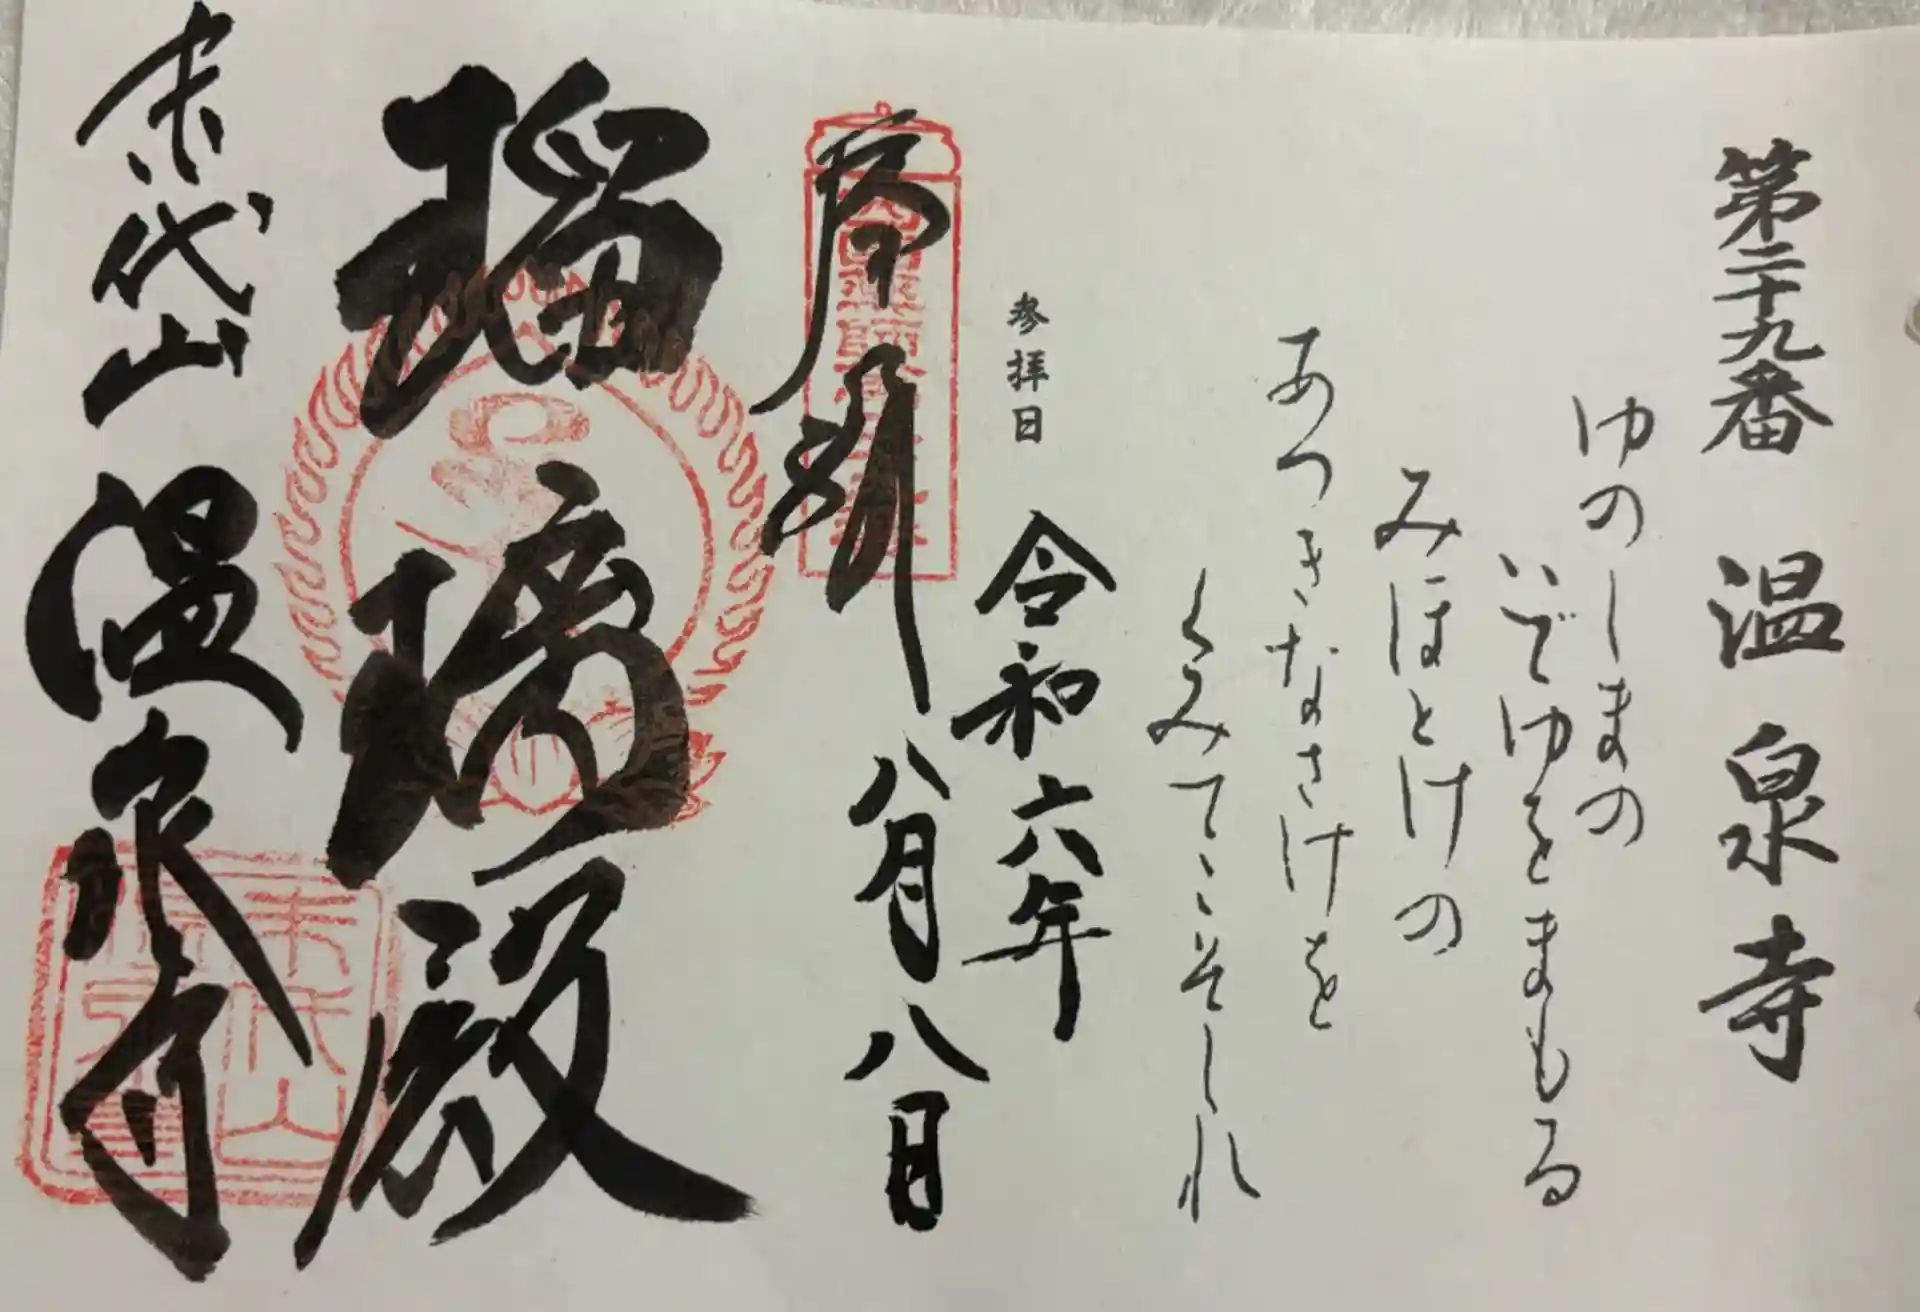 第二十九番 温泉寺
ゆのしまの
いでゆをまもる
みほとけの
あつきなさけを
くみてこそしれ
参拝日
令和六年
八月八日
奉拝
瑠璃殿
末代山 温泉寺